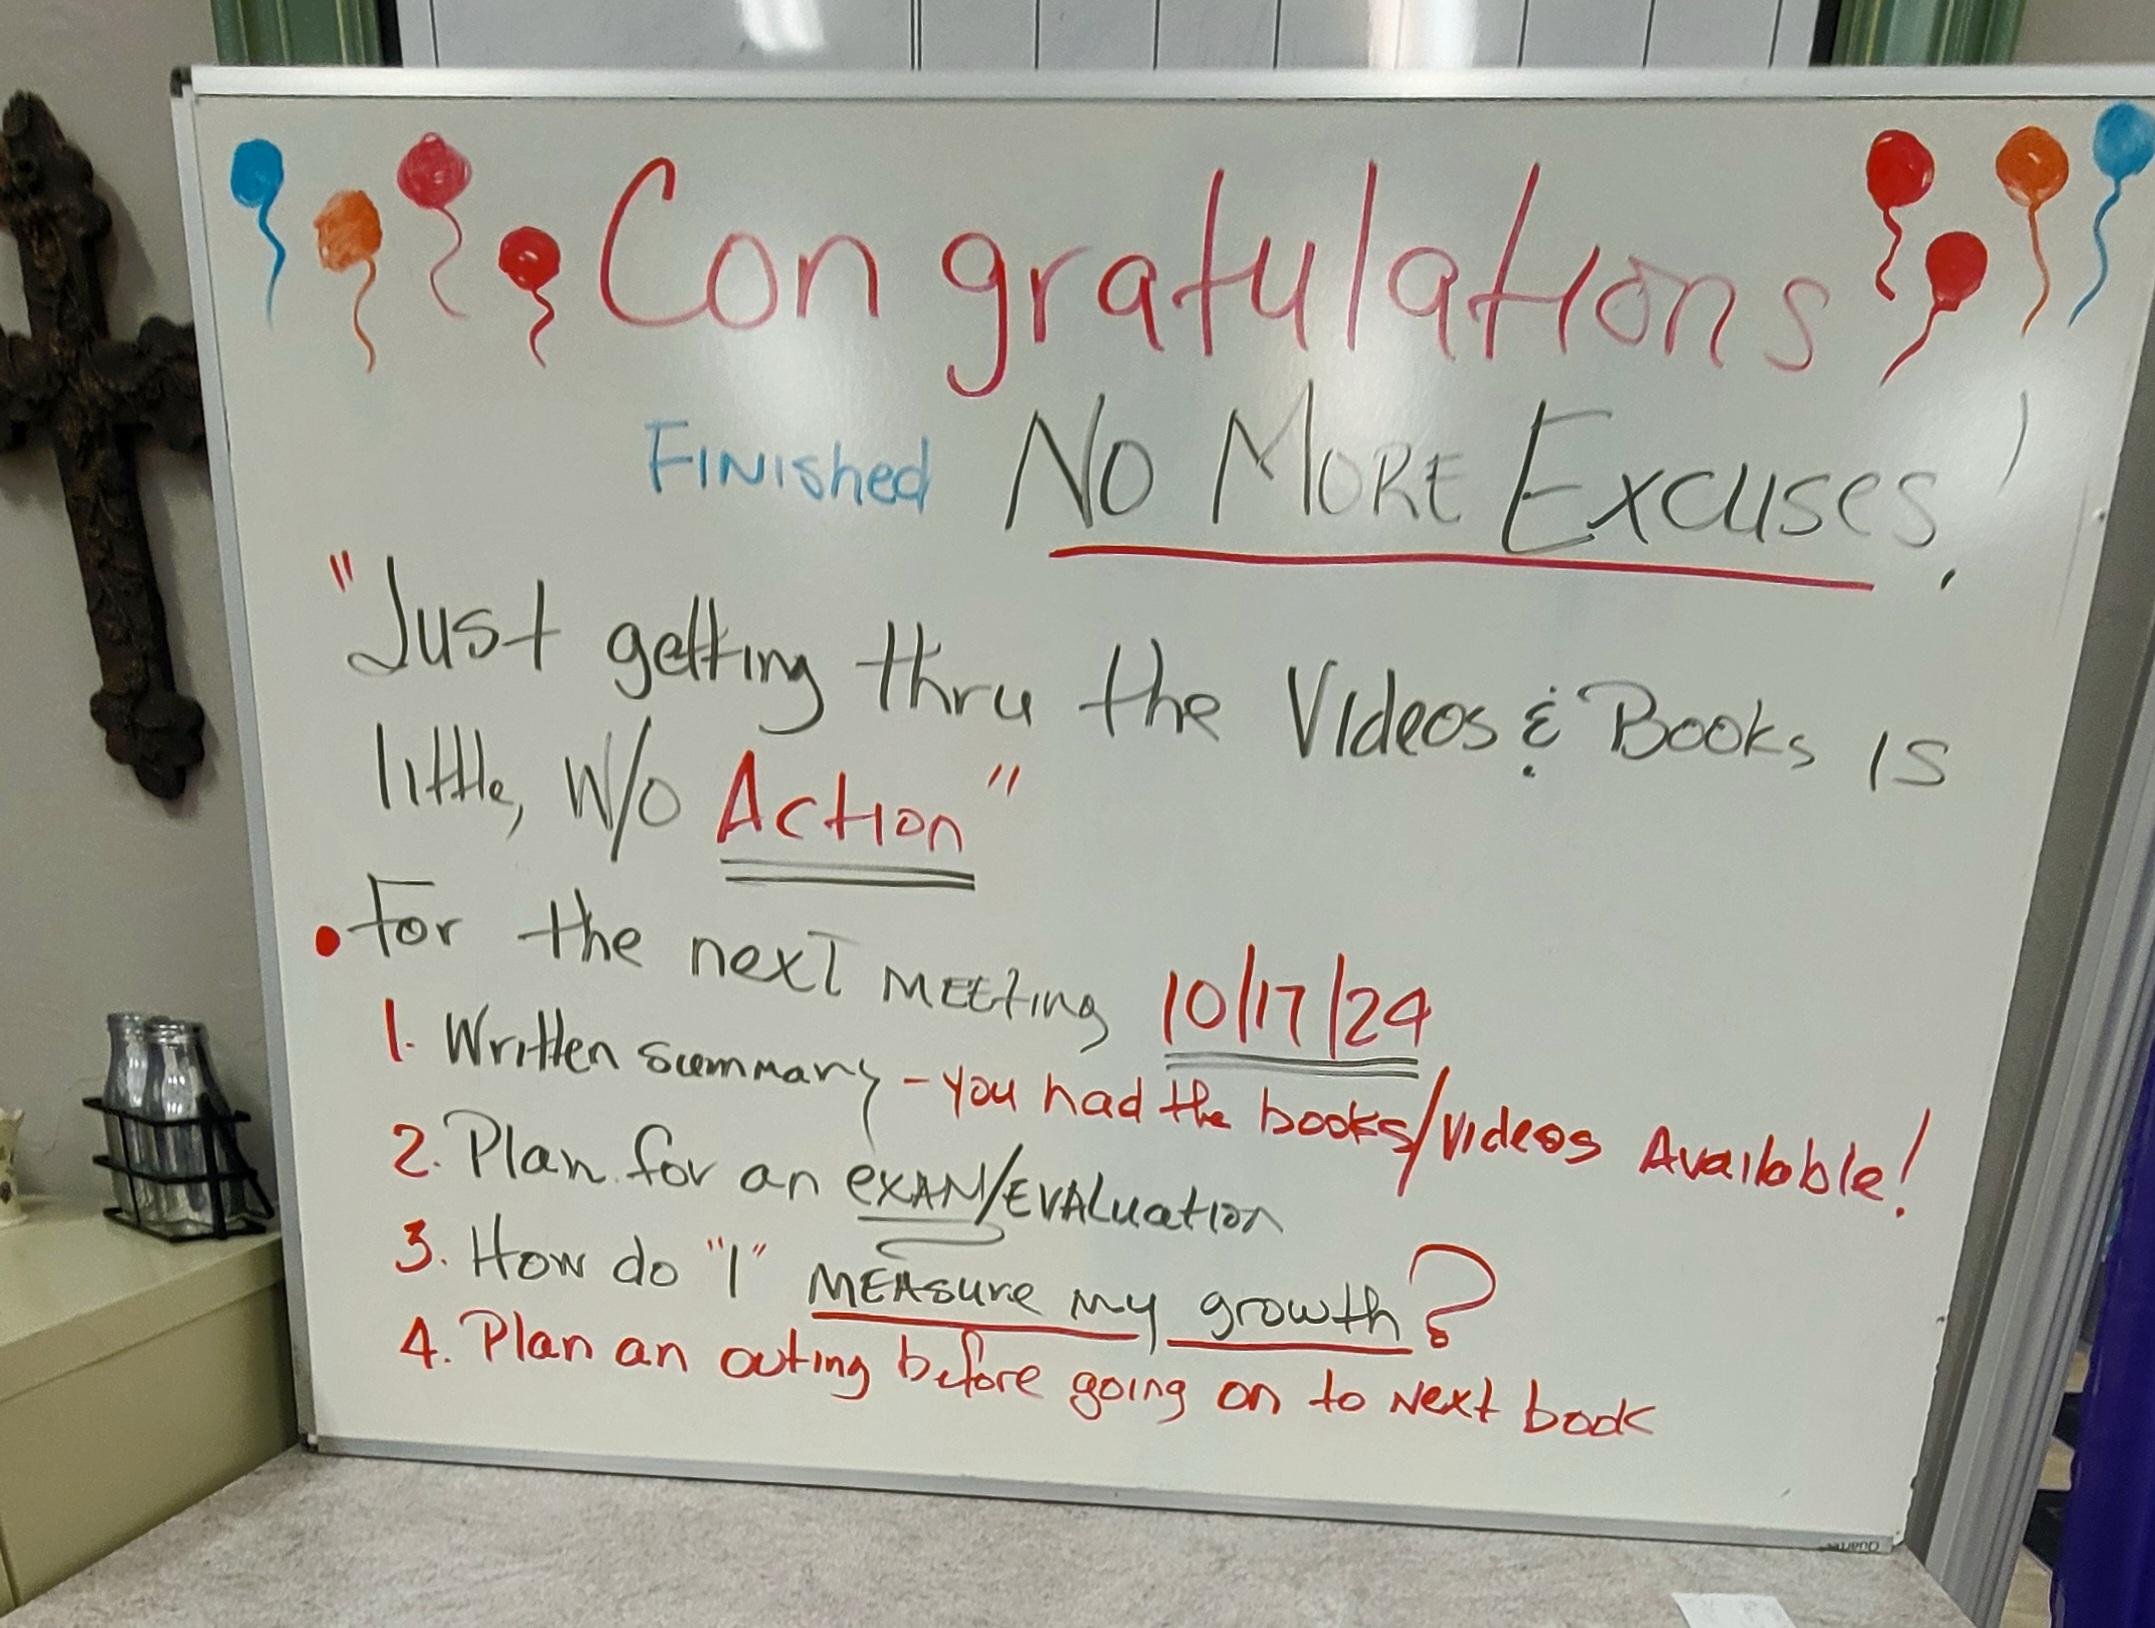 Congratulations
Finished No More Excuses!
"Just getting thru the Videos & Books is
little, w/o Action"
• For the next Meeting 10/17/24
1. Written summary - you had the books/videos Available!
2. Plan for an exam/Evaluation
3. How do "I" measure my growth?
4. Plan an outing before going on to Next book
Quartet